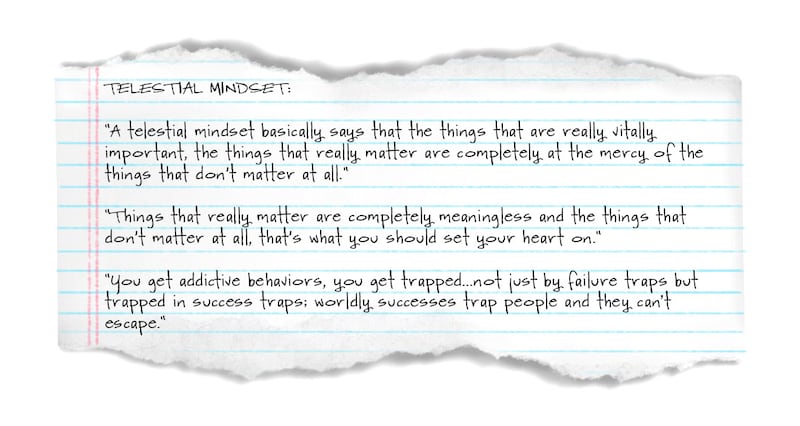 TELESTIAL MINDSET:
"A telestial mindset basically says that the things that are really vitally
important, the things that really matter are completely at the mercy of the
things that don't matter at all."
"Things that really matter are completely meaningless and the things that
don't matter at all, that's what you should set your heart on."
"You get addictive behaviors, you get trapped...not just by failure traps but
trapped in success traps; worldly successes trap people and they can't
escape."